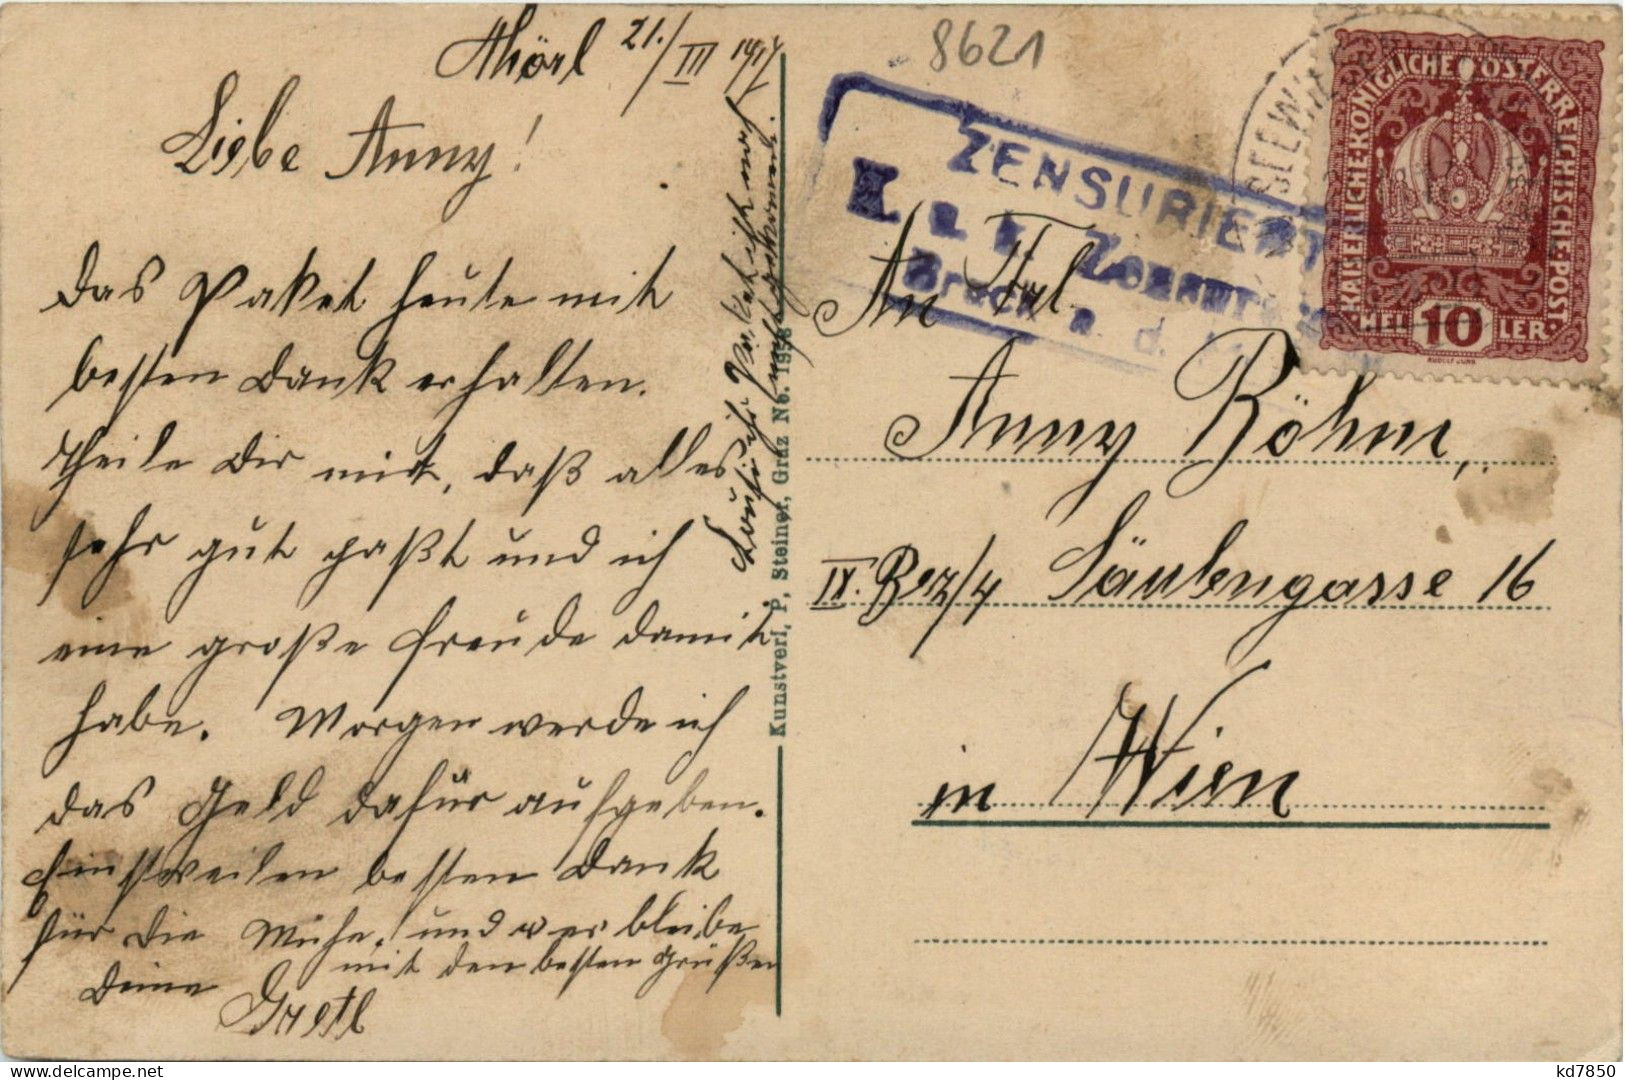 Thörl 21./III 1917
Liebe Anny!
Das Paket heute mit
besten Dank erhalten.
Theile Dir mit, daß alles
sehr gut paßt und ich
eine große Freude damit
habe. Morgen werde ich
das Geld dafür aufgeben.
Einstweilen besten Dank
für die Mühe, und verbleibe
mit den besten Grüßen
Deine
Gretl
Kunstverl. P. Steiner, Graz No. 1958
8621
ZENSURIERT
K. u. k. Zensur
Bruck a. d.
SEEWIESEN
KAISERLICHE KÖNIGLICHE ÖSTERREICHISCHE POST
HELLER 10
RUDOLF JUNK
An Frl.
Anny Böhm,
IX. Bez/4 Säulengasse 16
in Wien
kd7850